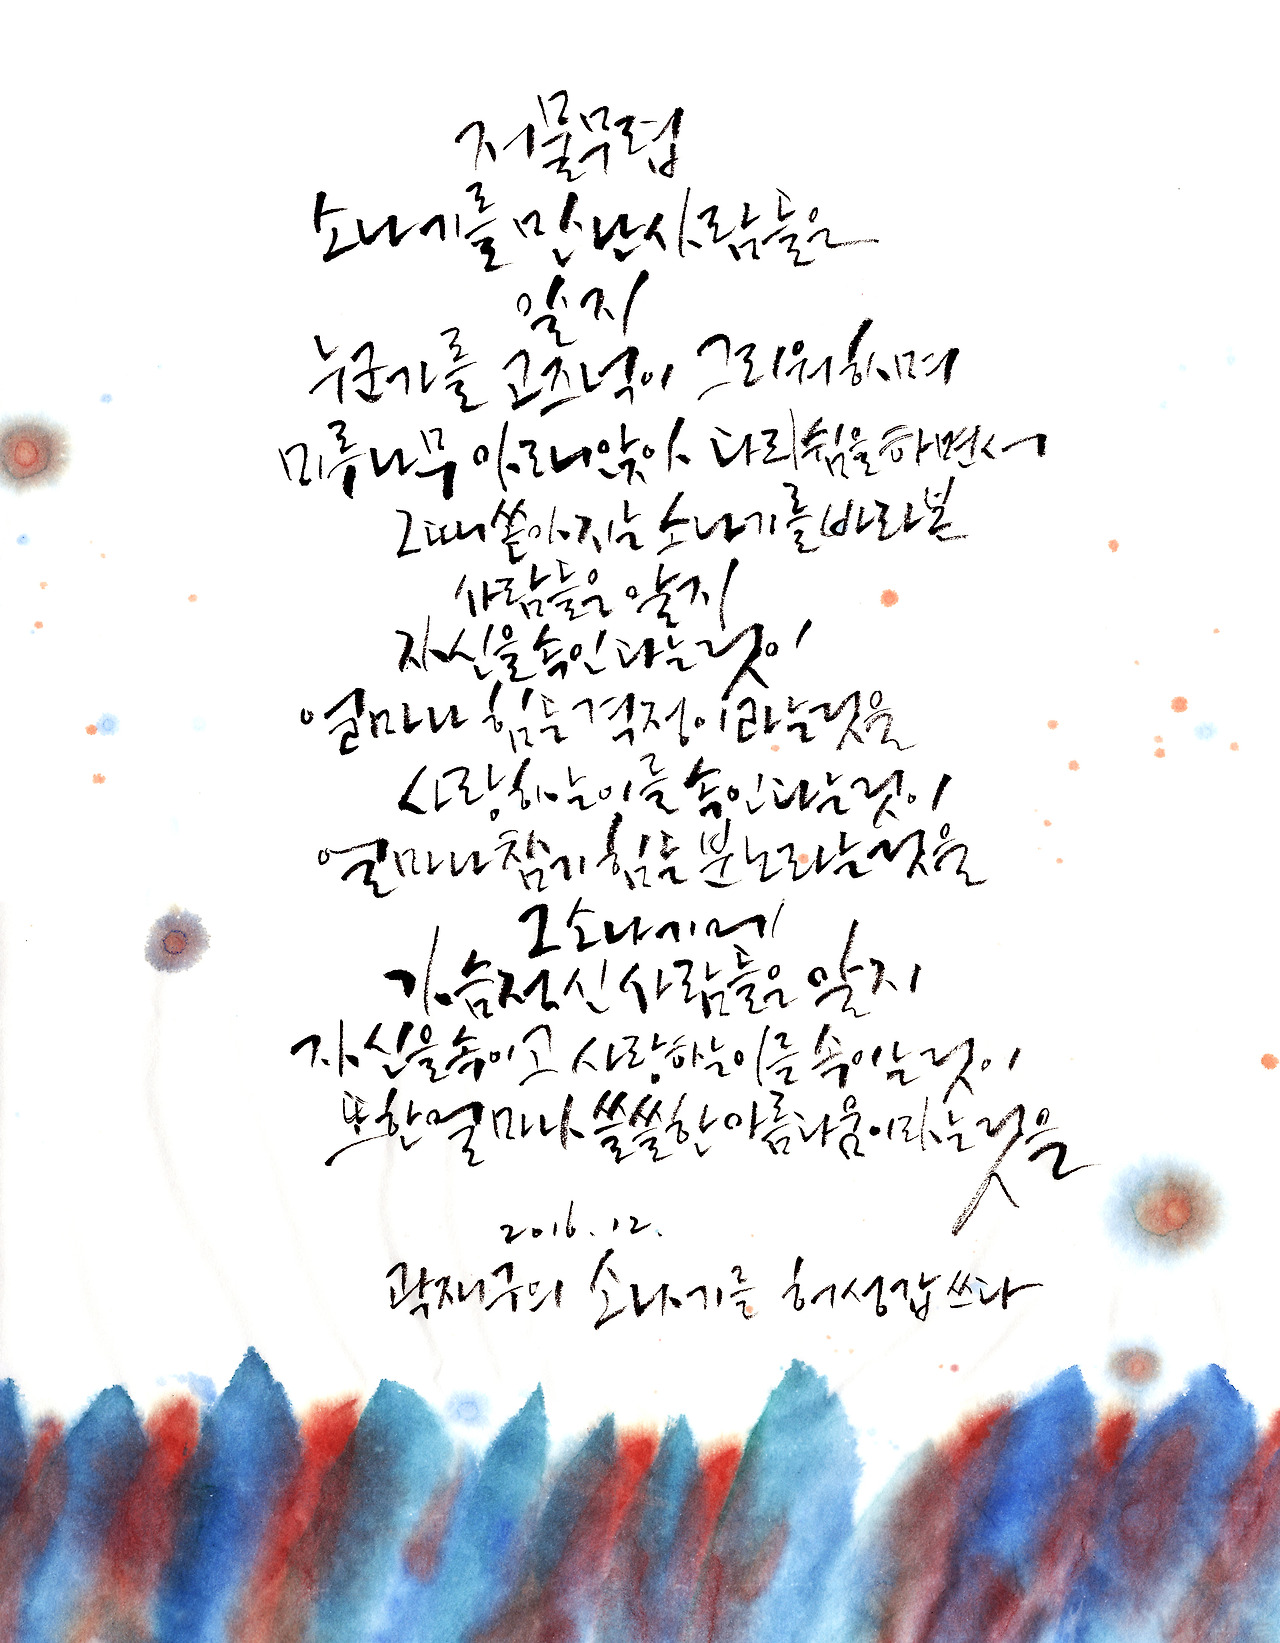 저물무렵
소나기를 만난 사람들은
알지
누군가를 고즈넉이 그리워하며
미루나무 아래 앉아 다리쉼을 하면서
그때 쏟아지는 소나기를 바라본
사람들은 알지
자신을 속인다는 것이
얼마나 힘든 걱정이라는 것을
사랑하는 이를 속인다는 것이
얼마나 참기 힘든 분노라는 것을
그 소나기에
가슴 적신 사람들은 알지
자신을 속이고 사랑하는 이를 속이는 것이
또한 얼마나 쓸쓸한 아름다움이라는 것을
2016.12.
곽재구의 소나기를 허성갑 쓰다